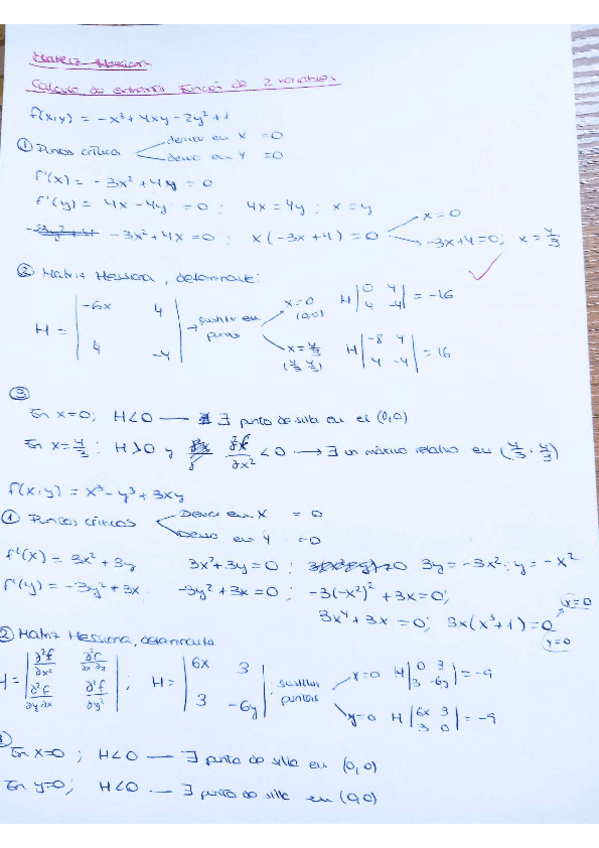 Matriz Hessiana
Calculo de extremos función de 2 variables
f(x,y) = -x³ + 4xy - 2y² + 1
① Puntos críticos
derivar en x = 0
deriv en y = 0
f'(x) = -3x² + 4y = 0
f'(y) = 4x - 4y = 0 ; 4x = 4y ; x = y
-3x² + 4x = 0 ; x(-3x + 4) = 0
x = 0
-3x + 4 = 0; x = 4/3
② Matriz Hessiana, determinante:
H = | -6x 4 |
| 4 -4 |
→ sustituir en puntos
x = 0 (0,0) H | 0 4 | 4 -4 | = -16
x = 4/3 (4/3 4/3) H | -8 4 | 4 -4 | = 16
③
En x=0; H<0 — ∃ punto de silla en el (0,0)
En x = 4/3 : H>0 y ∂²f/∂x² <0 → ∃ un máximo relativo en (4/3, 4/3)
f(x,y) = x³ - y³ + 3xy
① Puntos críticos
Deriv en x = 0
Deriv en y = 0
f'(x) = 3x² + 3y 3x² + 3y = 0 ; 3y = -3x² ; y = -x²
f'(y) = -3y² + 3x -3y² + 3x = 0 ; -3(-x²)² + 3x = 0;
3x⁴ + 3x = 0; 3x(x³+1) = 0
x = 0
y = 0
② Matriz Hessiana, determinante
H = | ∂²f/∂x² ∂²f/∂x∂y |
| ∂²f/∂y∂x ∂²f/∂y² |
; H = | 6x 3 |
| 3 -6y |
sustituir puntos
x=0 H | 0 3 | 3 -6y | = -9
y=0 H | 6x 3 | 3 0 | = -9
En x=0 ; H<0 — ∃ punto de silla en (0,0)
En y=0; H<0 — ∃ punto de silla en (0,0)